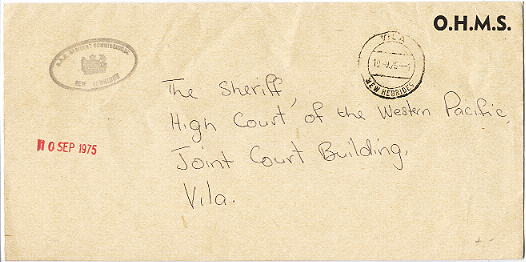 O.H.M.S.
RESIDENT COMMISSIONER
NEW HEBRIDES
VILA
NEW HEBRIDES
The Sheriff,
High Court of the Western Pacific,
Joint Court Building,
Vila.
10 SEP 1975